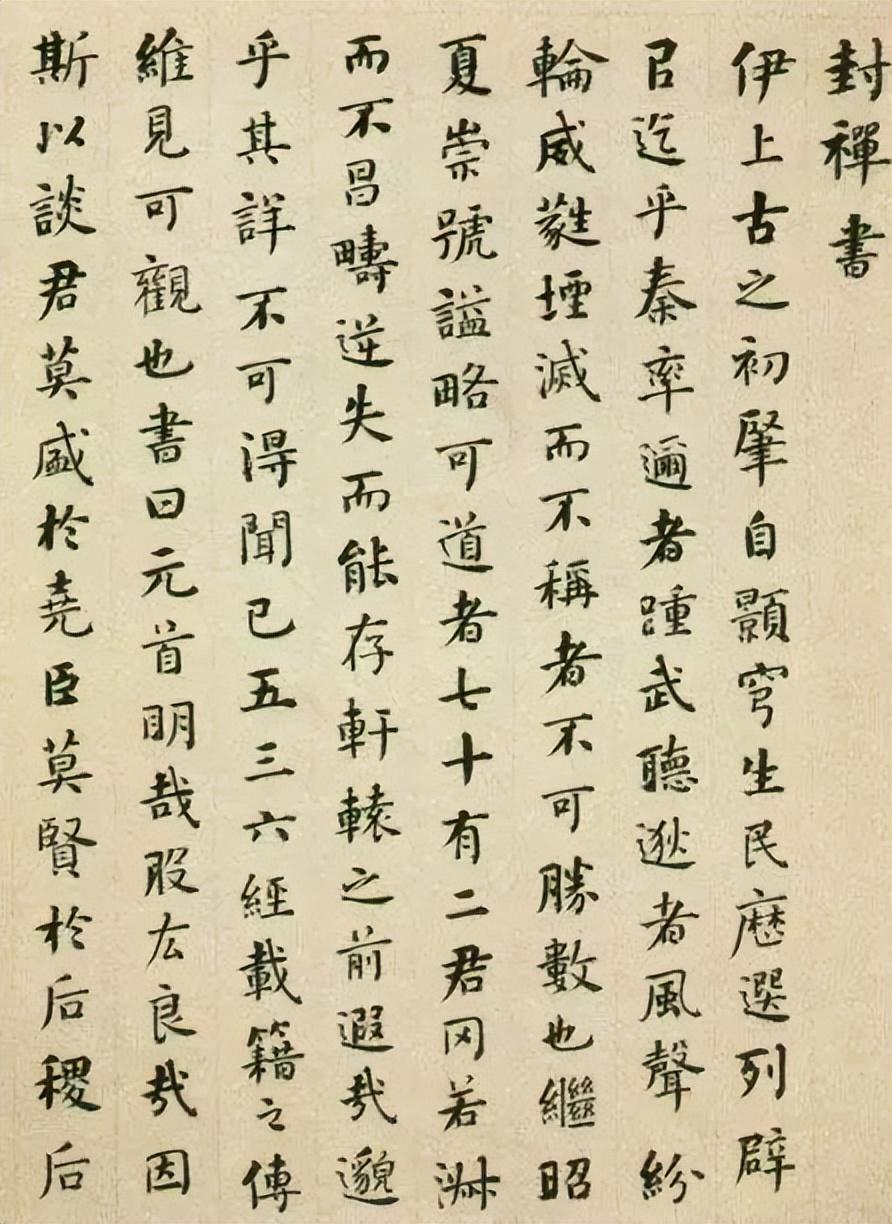 封禪書
伊上古之初肇自顥穹生民歷選列辟
㠯迄乎秦率邇者踵武聽逖者風聲紛
輪威蕤堙滅而不稱者不可勝數也繼昭
夏崇號謚略可道者七十有二君罔若淋
而不昌疇逆失而能存軒轅之前遐哉邈
乎其詳不可得聞已五三六經載籍之傳
維見可觀也書曰元首明哉股厷良哉因
斯以談君莫盛於堯臣莫賢於后稷后